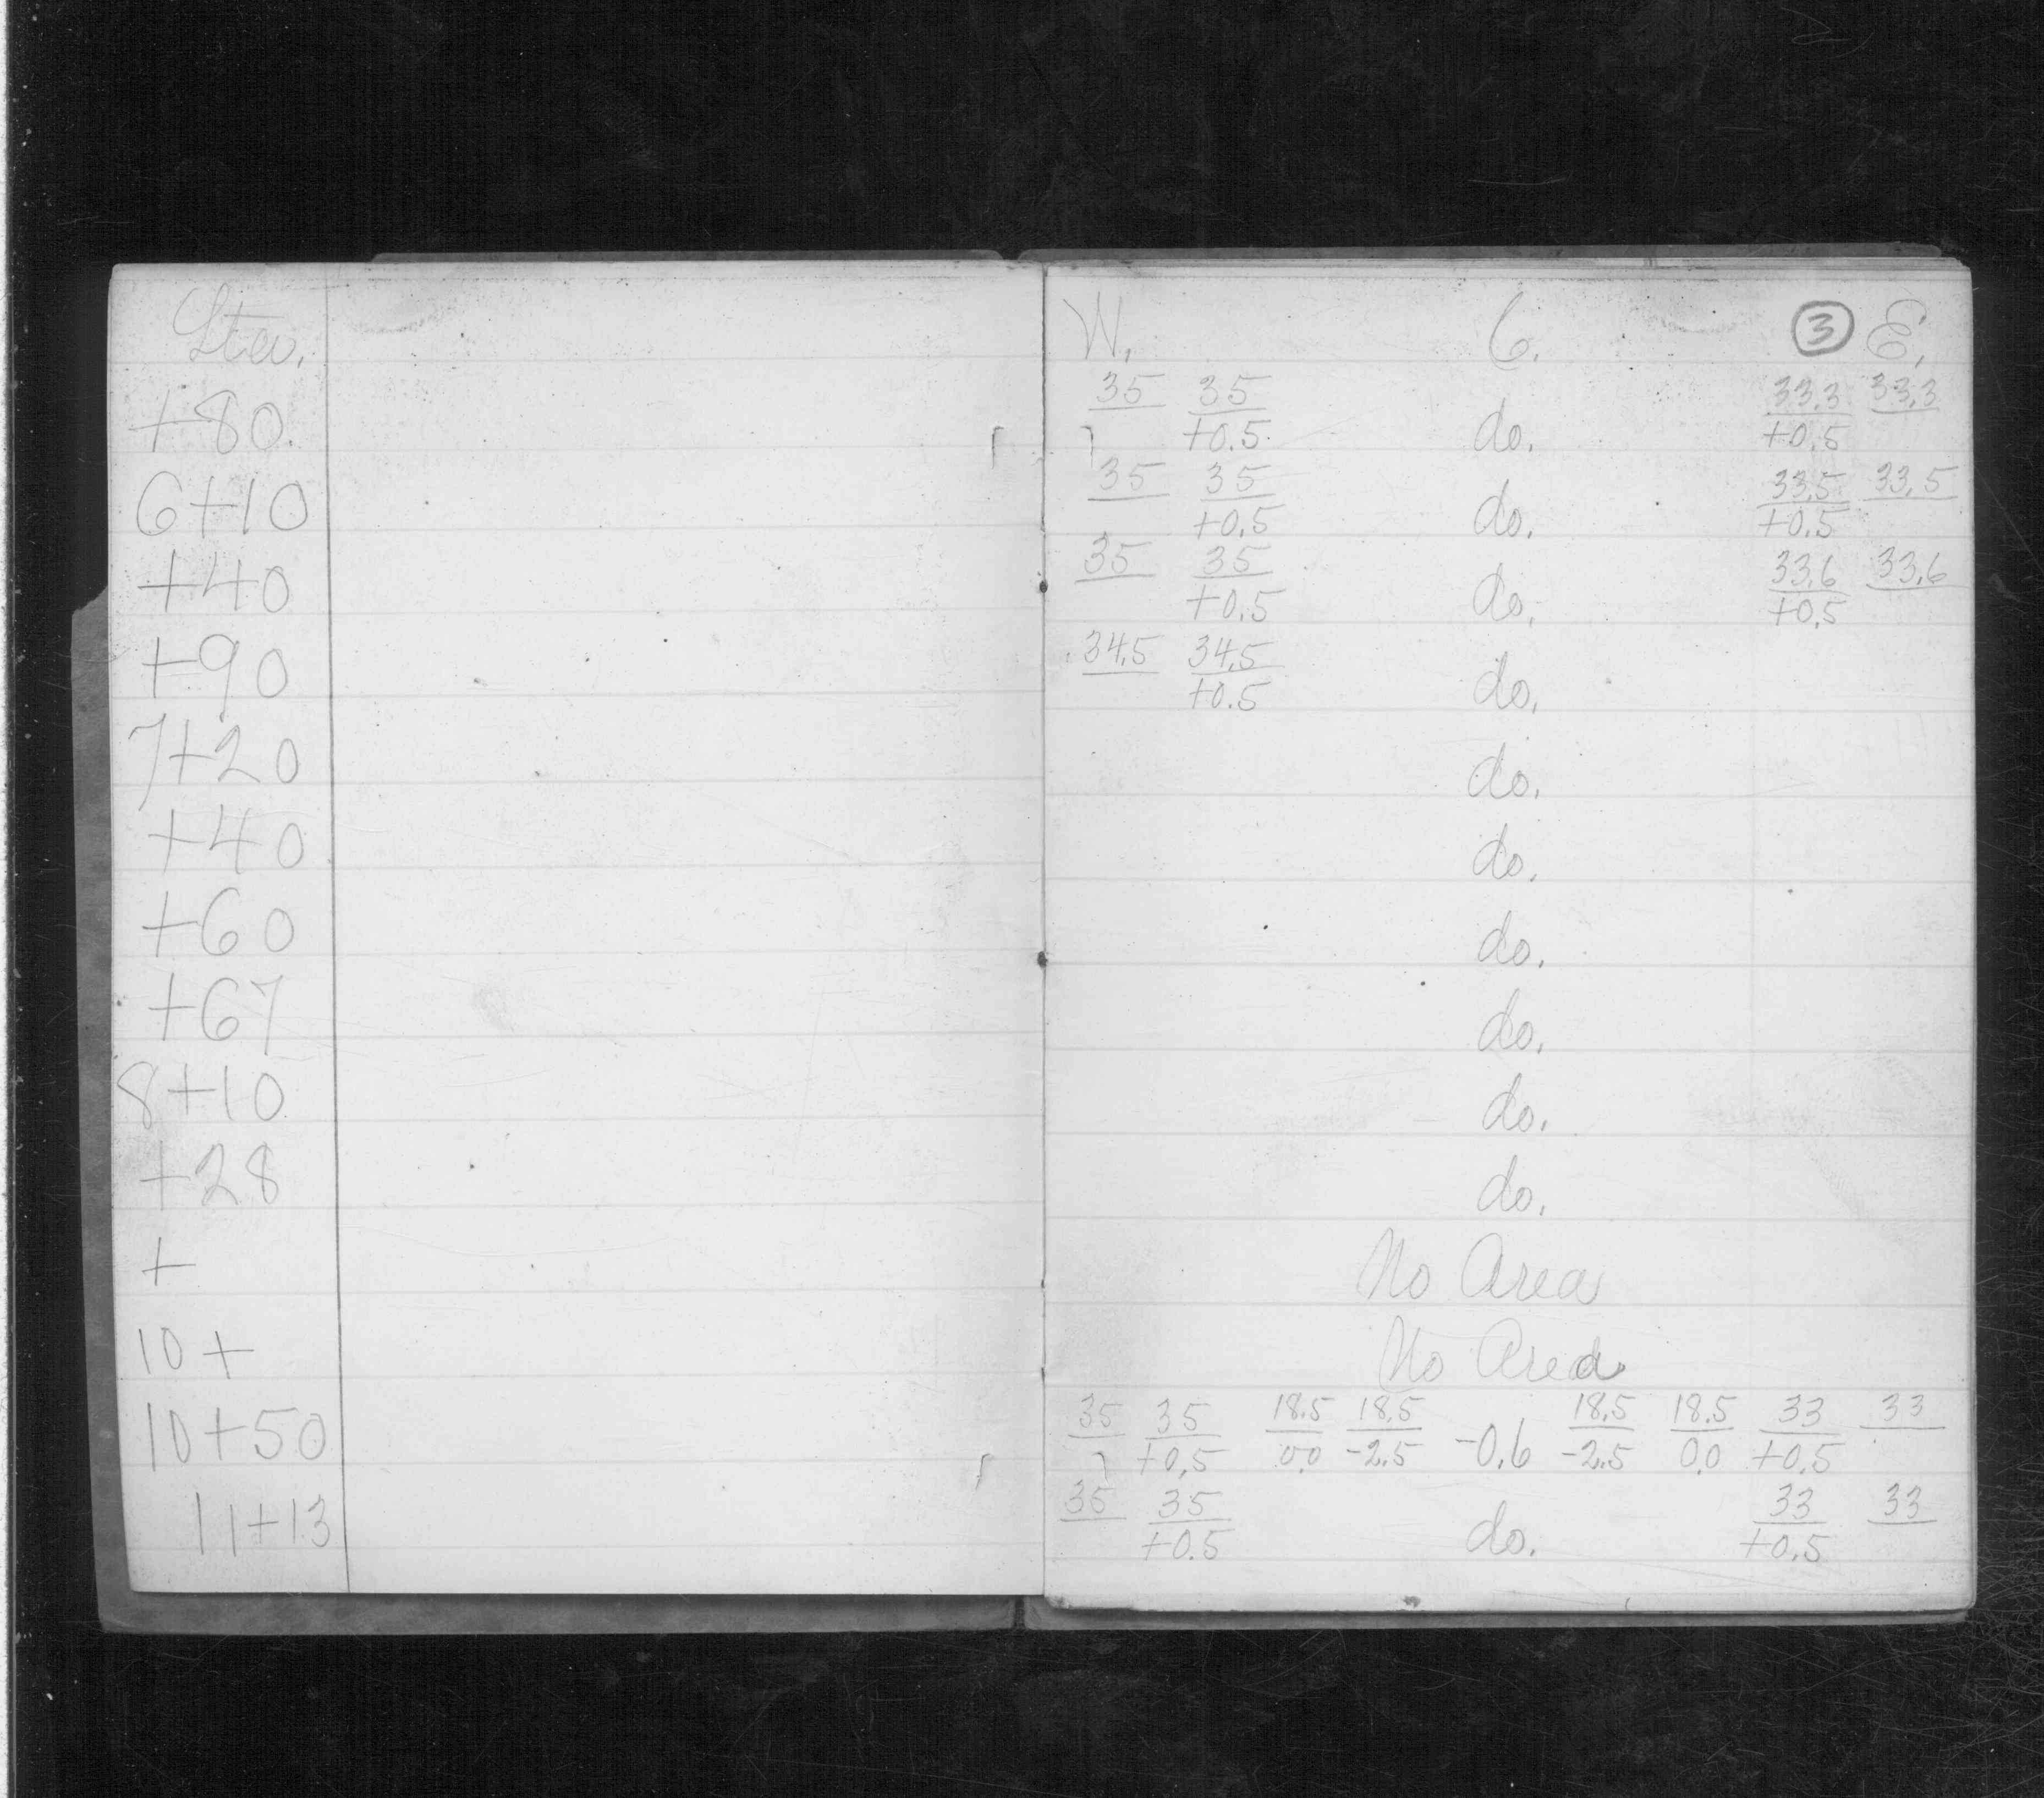 Sta. W. C. 3 E.
+80. 35 35/+0.5 do. 33.3/+0.5 33.3
6+10 35 35/+0.5 do. 33.5/+0.5 33.5
+40 35 35/+0.5 do. 33.6/+0.5 33.6
+90 34.5 34.5/+0.5 do.
7+20 do.
+40 do.
+60 do.
+67 do.
8+10 do.
+28 do.
+ No Area
10+ No Area
10+50 35 35/+0.5 18.5/0.0 18.5/-2.5 -0.6 18.5/-2.5 18.5/0.0 33/+0.5 33
11+13 35 35/+0.5 do. 33/+0.5 33